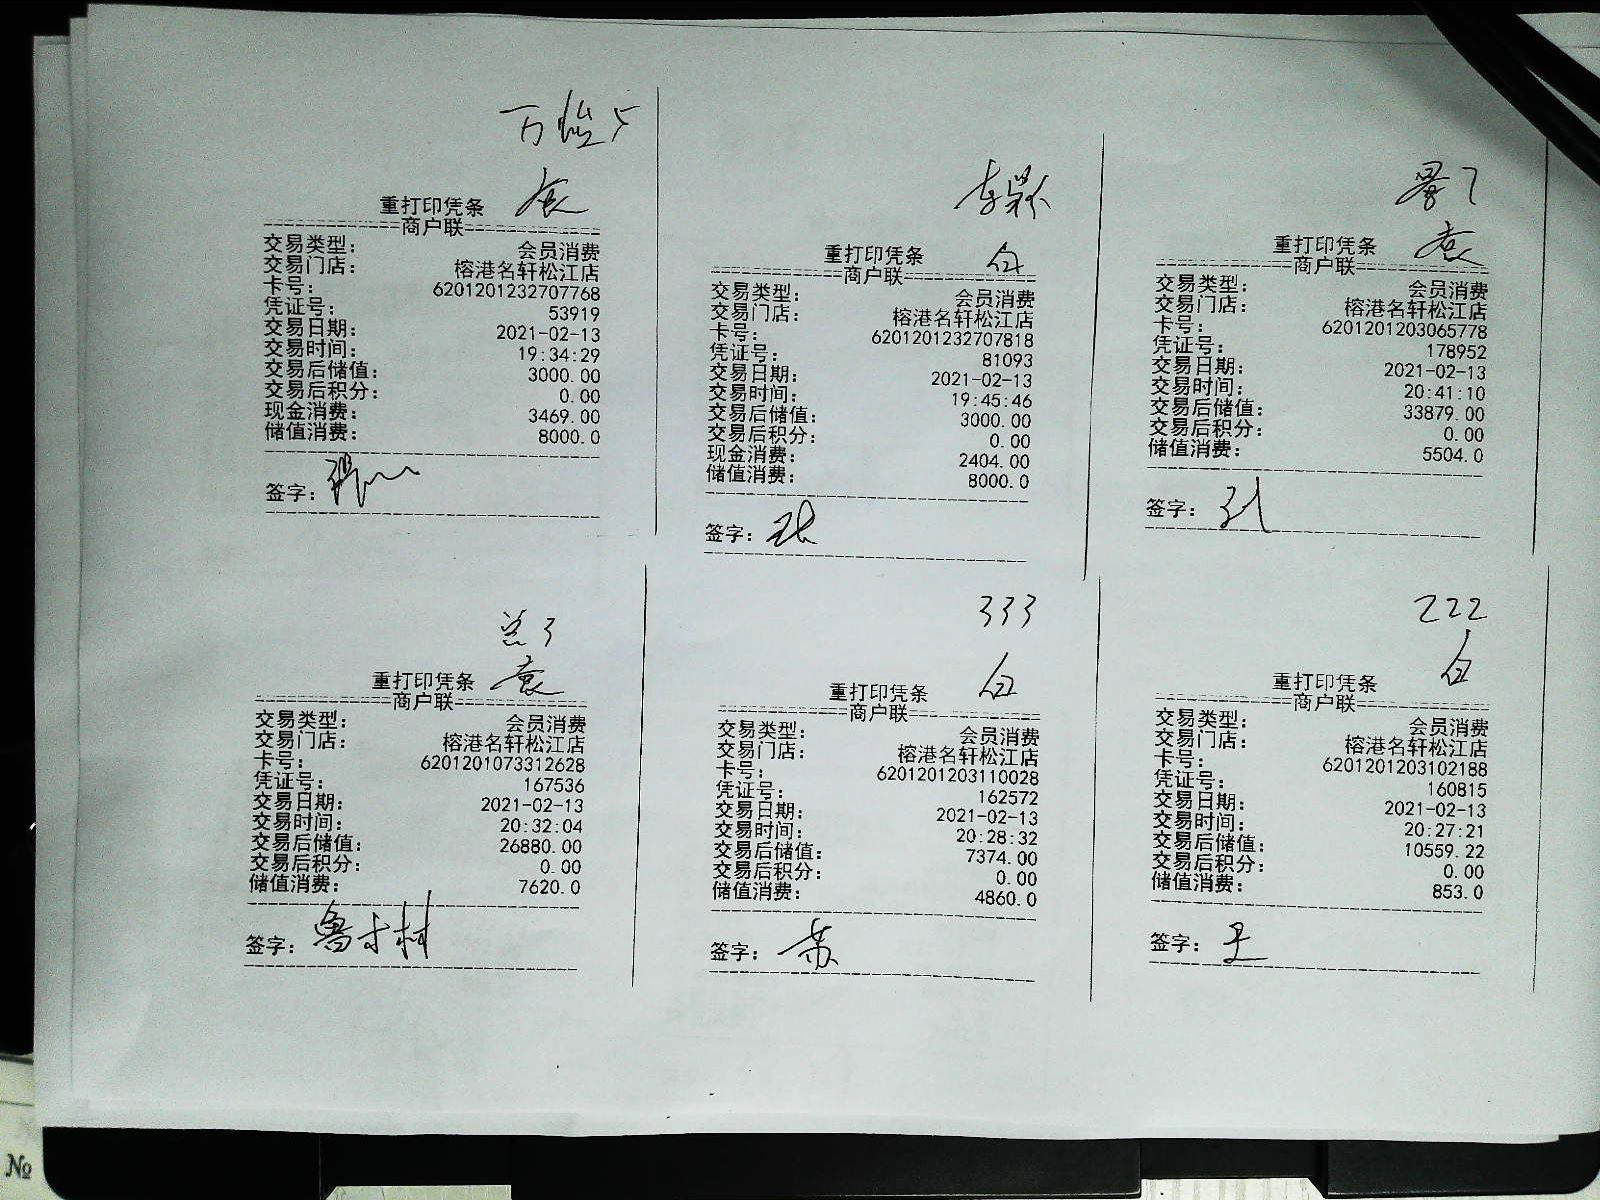 重打印凭条
商户联
交易类型： 会员消费
交易门店： 榕港名轩松江店
卡号： 6201201232707768
凭证号： 53919
交易日期： 2021-02-13
交易时间： 19:34:29
交易后储值： 3000.00
交易后积分： 0.00
现金消费： 3469.00
储值消费： 8000.0
签字：
重打印凭条
商户联
交易类型： 会员消费
交易门店： 榕港名轩松江店
卡号： 6201201232707818
凭证号： 81093
交易日期： 2021-02-13
交易时间： 19:45:46
交易后储值： 3000.00
交易后积分： 0.00
现金消费： 2404.00
储值消费： 8000.0
签字：
重打印凭条
商户联
交易类型： 会员消费
交易门店： 榕港名轩松江店
卡号： 6201201203065778
凭证号： 178952
交易日期： 2021-02-13
交易时间： 20:41:10
交易后储值： 33879.00
交易后积分： 0.00
储值消费： 5504.0
签字：
重打印凭条
商户联
交易类型： 会员消费
交易门店： 榕港名轩松江店
卡号： 6201201073312628
凭证号： 167536
交易日期： 2021-02-13
交易时间： 20:32:04
交易后储值： 26880.00
交易后积分： 0.00
储值消费： 7620.0
签字：
333
重打印凭条
商户联
交易类型： 会员消费
交易门店： 榕港名轩松江店
卡号： 6201201203110028
凭证号： 162572
交易日期： 2021-02-13
交易时间： 20:28:32
交易后储值： 7374.00
交易后积分： 0.00
储值消费： 4860.0
签字： 苏
222
重打印凭条
商户联
交易类型： 会员消费
交易门店： 榕港名轩松江店
卡号： 6201201203102188
凭证号： 160815
交易日期： 2021-02-13
交易时间： 20:27:21
交易后储值： 10559.22
交易后积分： 0.00
储值消费： 853.0
签字：
№